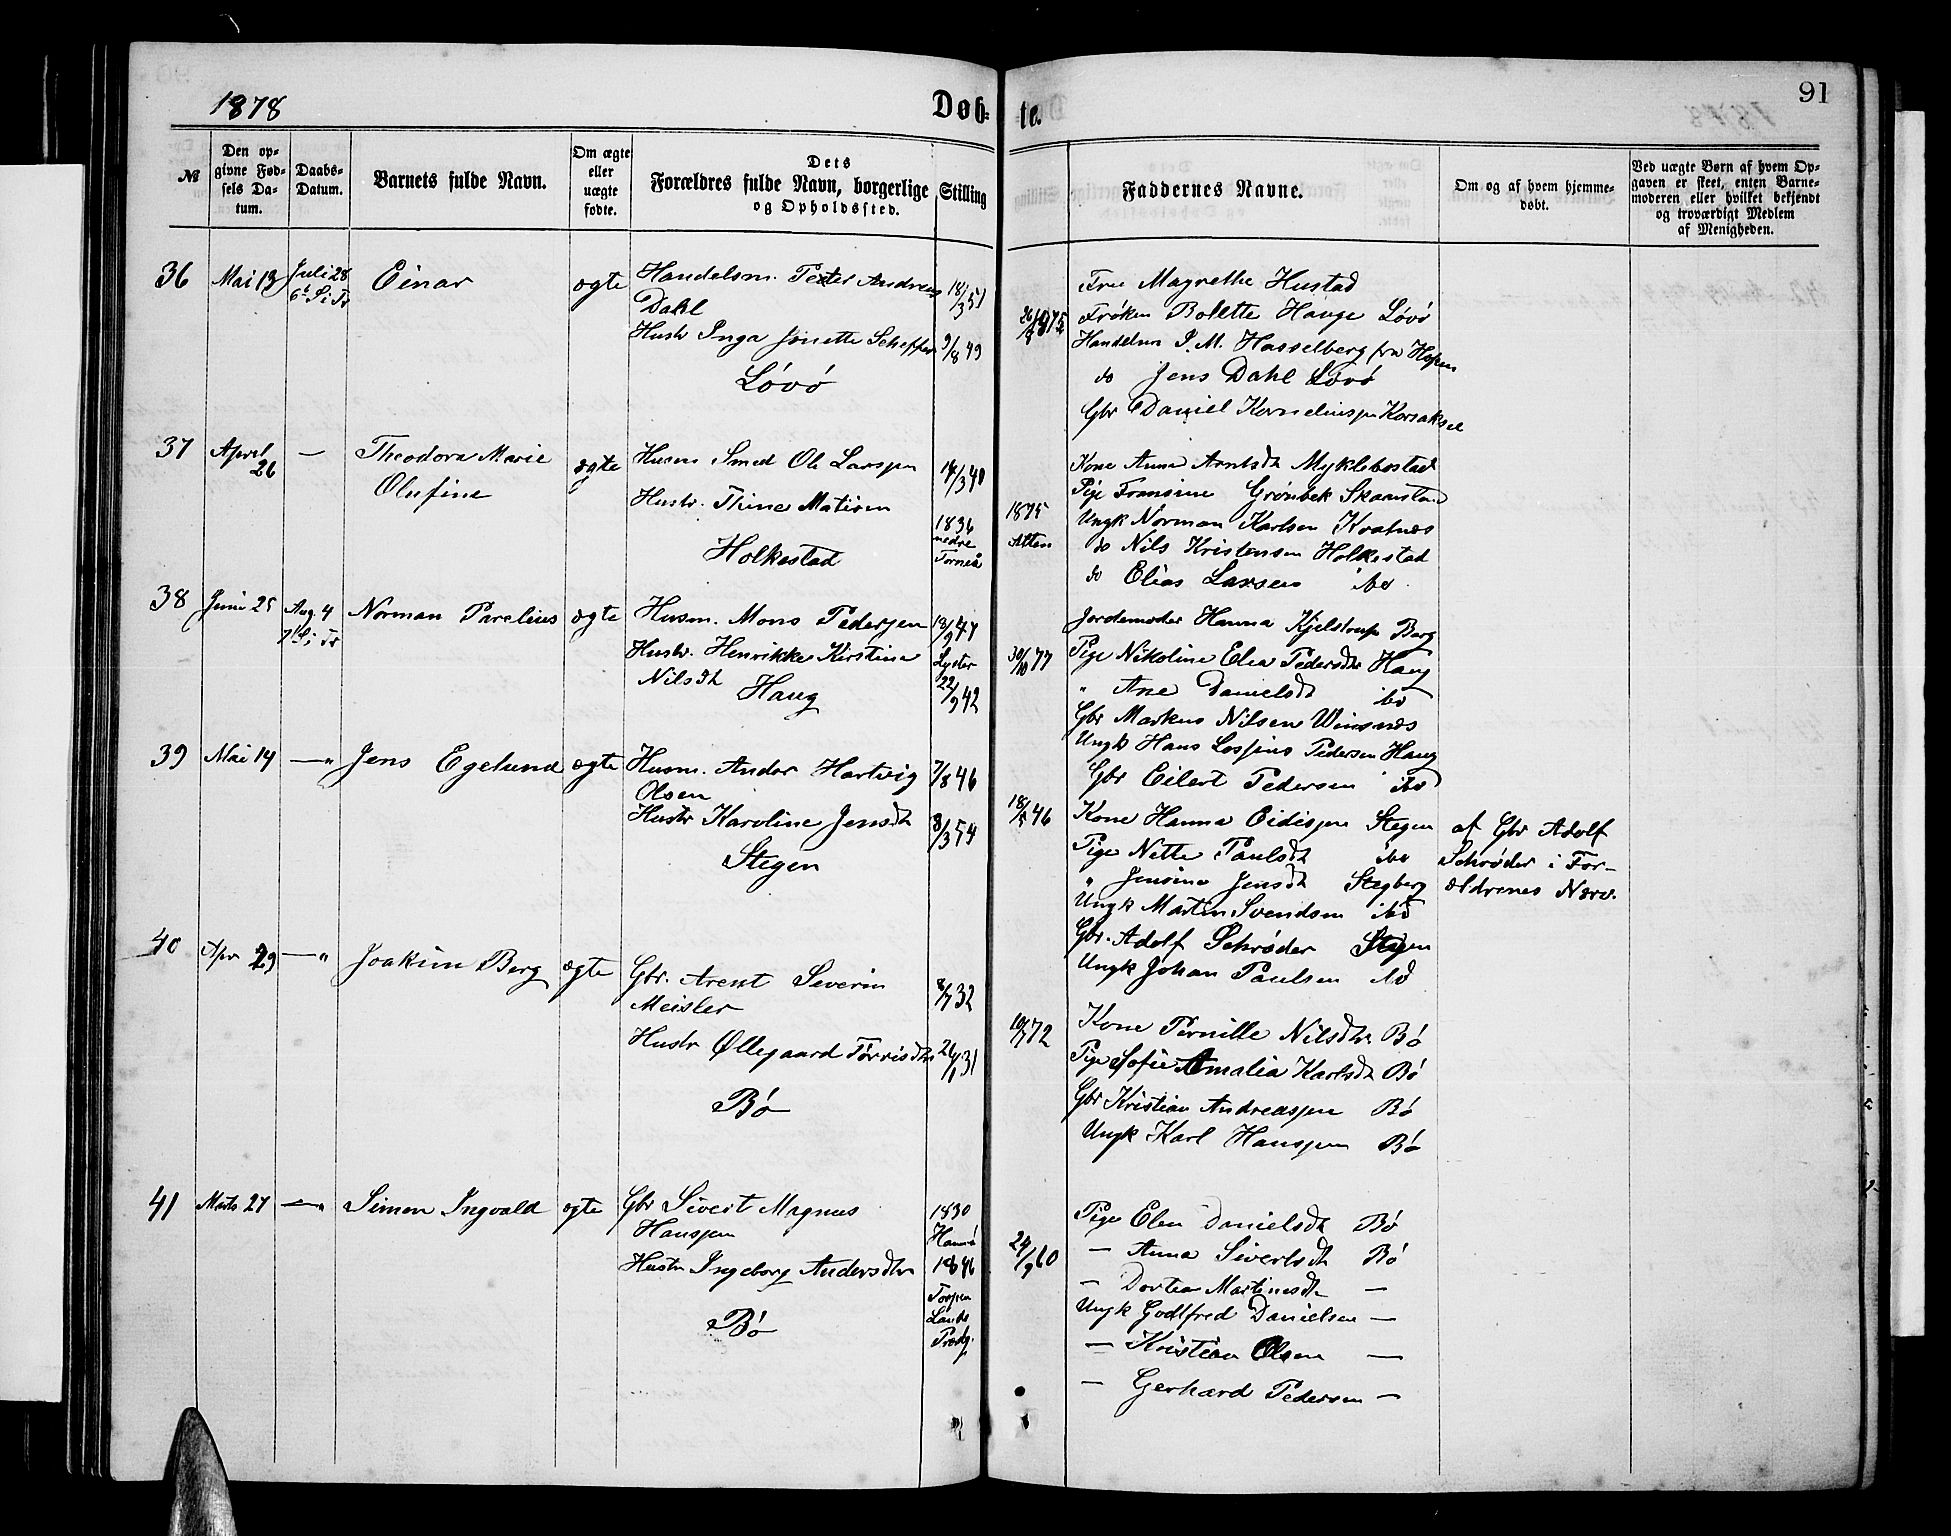 1878
Døb-
te.
91
№
Den op-
givne Fød-
sels Da-
tum.
Daabs-
Datum.
Barnets fulde Navn.
Om ægte
eller
uægte
fødte.
Dets
Forældres fulde Navn, borgerlige Stilling
og Opholdssted.
Faddernes Navne.
Om og af hvem hjemme-
døbt.
Ved uægte Børn af hvem Op-
gaven er skeet, enten Barne-
moderen eller hvilket bekjendt
og troværdigt Medlem
af Menigheden.
36
Mai 13
Juli 28
6te S. i Tr
Einar
ægte
Handelsm. Peter Andreas
Dahl
Hustr Inga Jonette Scheffer
Løvø
18/3 51
9/8 49
Fru Magrethe Hustad
Frøken Bolette Hauge Løvø
Handelsm I. M. Hasselberg fra Hopen
do Jens Dahl Løvø
Gbr Daniel Korneliussen Korsaksel
37
April
26
—
Theodora Marie
Olufine
ægte
Husm Smed Ole Larssen
Hustr. Thine Matisen
Holkestad
14/3 40
1836
nedre
Torneå
1875
Alten
Kone Anna Arntsdt Myklebostad
Pige Fransine Grønbek Skaanstad
Ungk Norman Karlsen Kvalnæs
do Nils Kristensen Holkestad
do Elias Larsen ibd
38
Juni 25
Aug. 4
7de S. i Tr
Norman Parelius
ægte
Husm. Mons Pedersen
Hustr. Henrikke Kirstine
Nilsdt
Haug
13/9 47
Lyster
22/9 42
30/10 77
Jordemoder Hanna Kjelstrup Berg
Pige Nikoline Elea Pedersdtr Haug
" Ane Danielsdt ibd
Gbr Markus Nilsen Winsnæs
Ungk Hans Lossius Pedersen Haug
Gbr Eilert Pedersen ibd
39
Mai 14
— "
Jens Egelund
ægte
Husm. Andor Hartvig
Olsen
Hustr Karoline Jensdt
Stegen
7/8 46
8/3 54
Kone Hanna Eidissen Stegen
Pige Nette Paulsdt ibd
" Jensine Jensdt Stegberg
Ungk Martin Svendsen ibd
Gbr. Adolf Schrøder Stegen
Ungk Johan Paulsen ibd
af Gbr Adolf
Schrøder i For-
ældrenes Nærv.
40
Apr 29
— "
Joakim Berg
ægte
Gbr. Arent Severin
Meisler
Hustr Øllegaard Tørrisdtr
Bø
8/7 32
26/1 31
10/7 72
Kone Pernille Nilsdtr Bø
Pige Sofie Amalia Karlsdt Bø
Gbr Kristian Andreassen Bø
Ungk Karl Hanssen Bø
41
Marts 27
— "
Simon Ingvald
ægte
Gbr Sivert Magnus
Hanssen
Hustr Ingeborg Andersdtr
Bø
1830
Hamrø
1846
Torpen
Lands
Prædg.
24/9 60
Pige Elen Danielsdt Bø
— Anna Sivertsdt Bø
— Dortea Martinusdt —
Ungk Godtfred Danielsen —
— Kristian Olsen —
— Gerhard Pedersen —